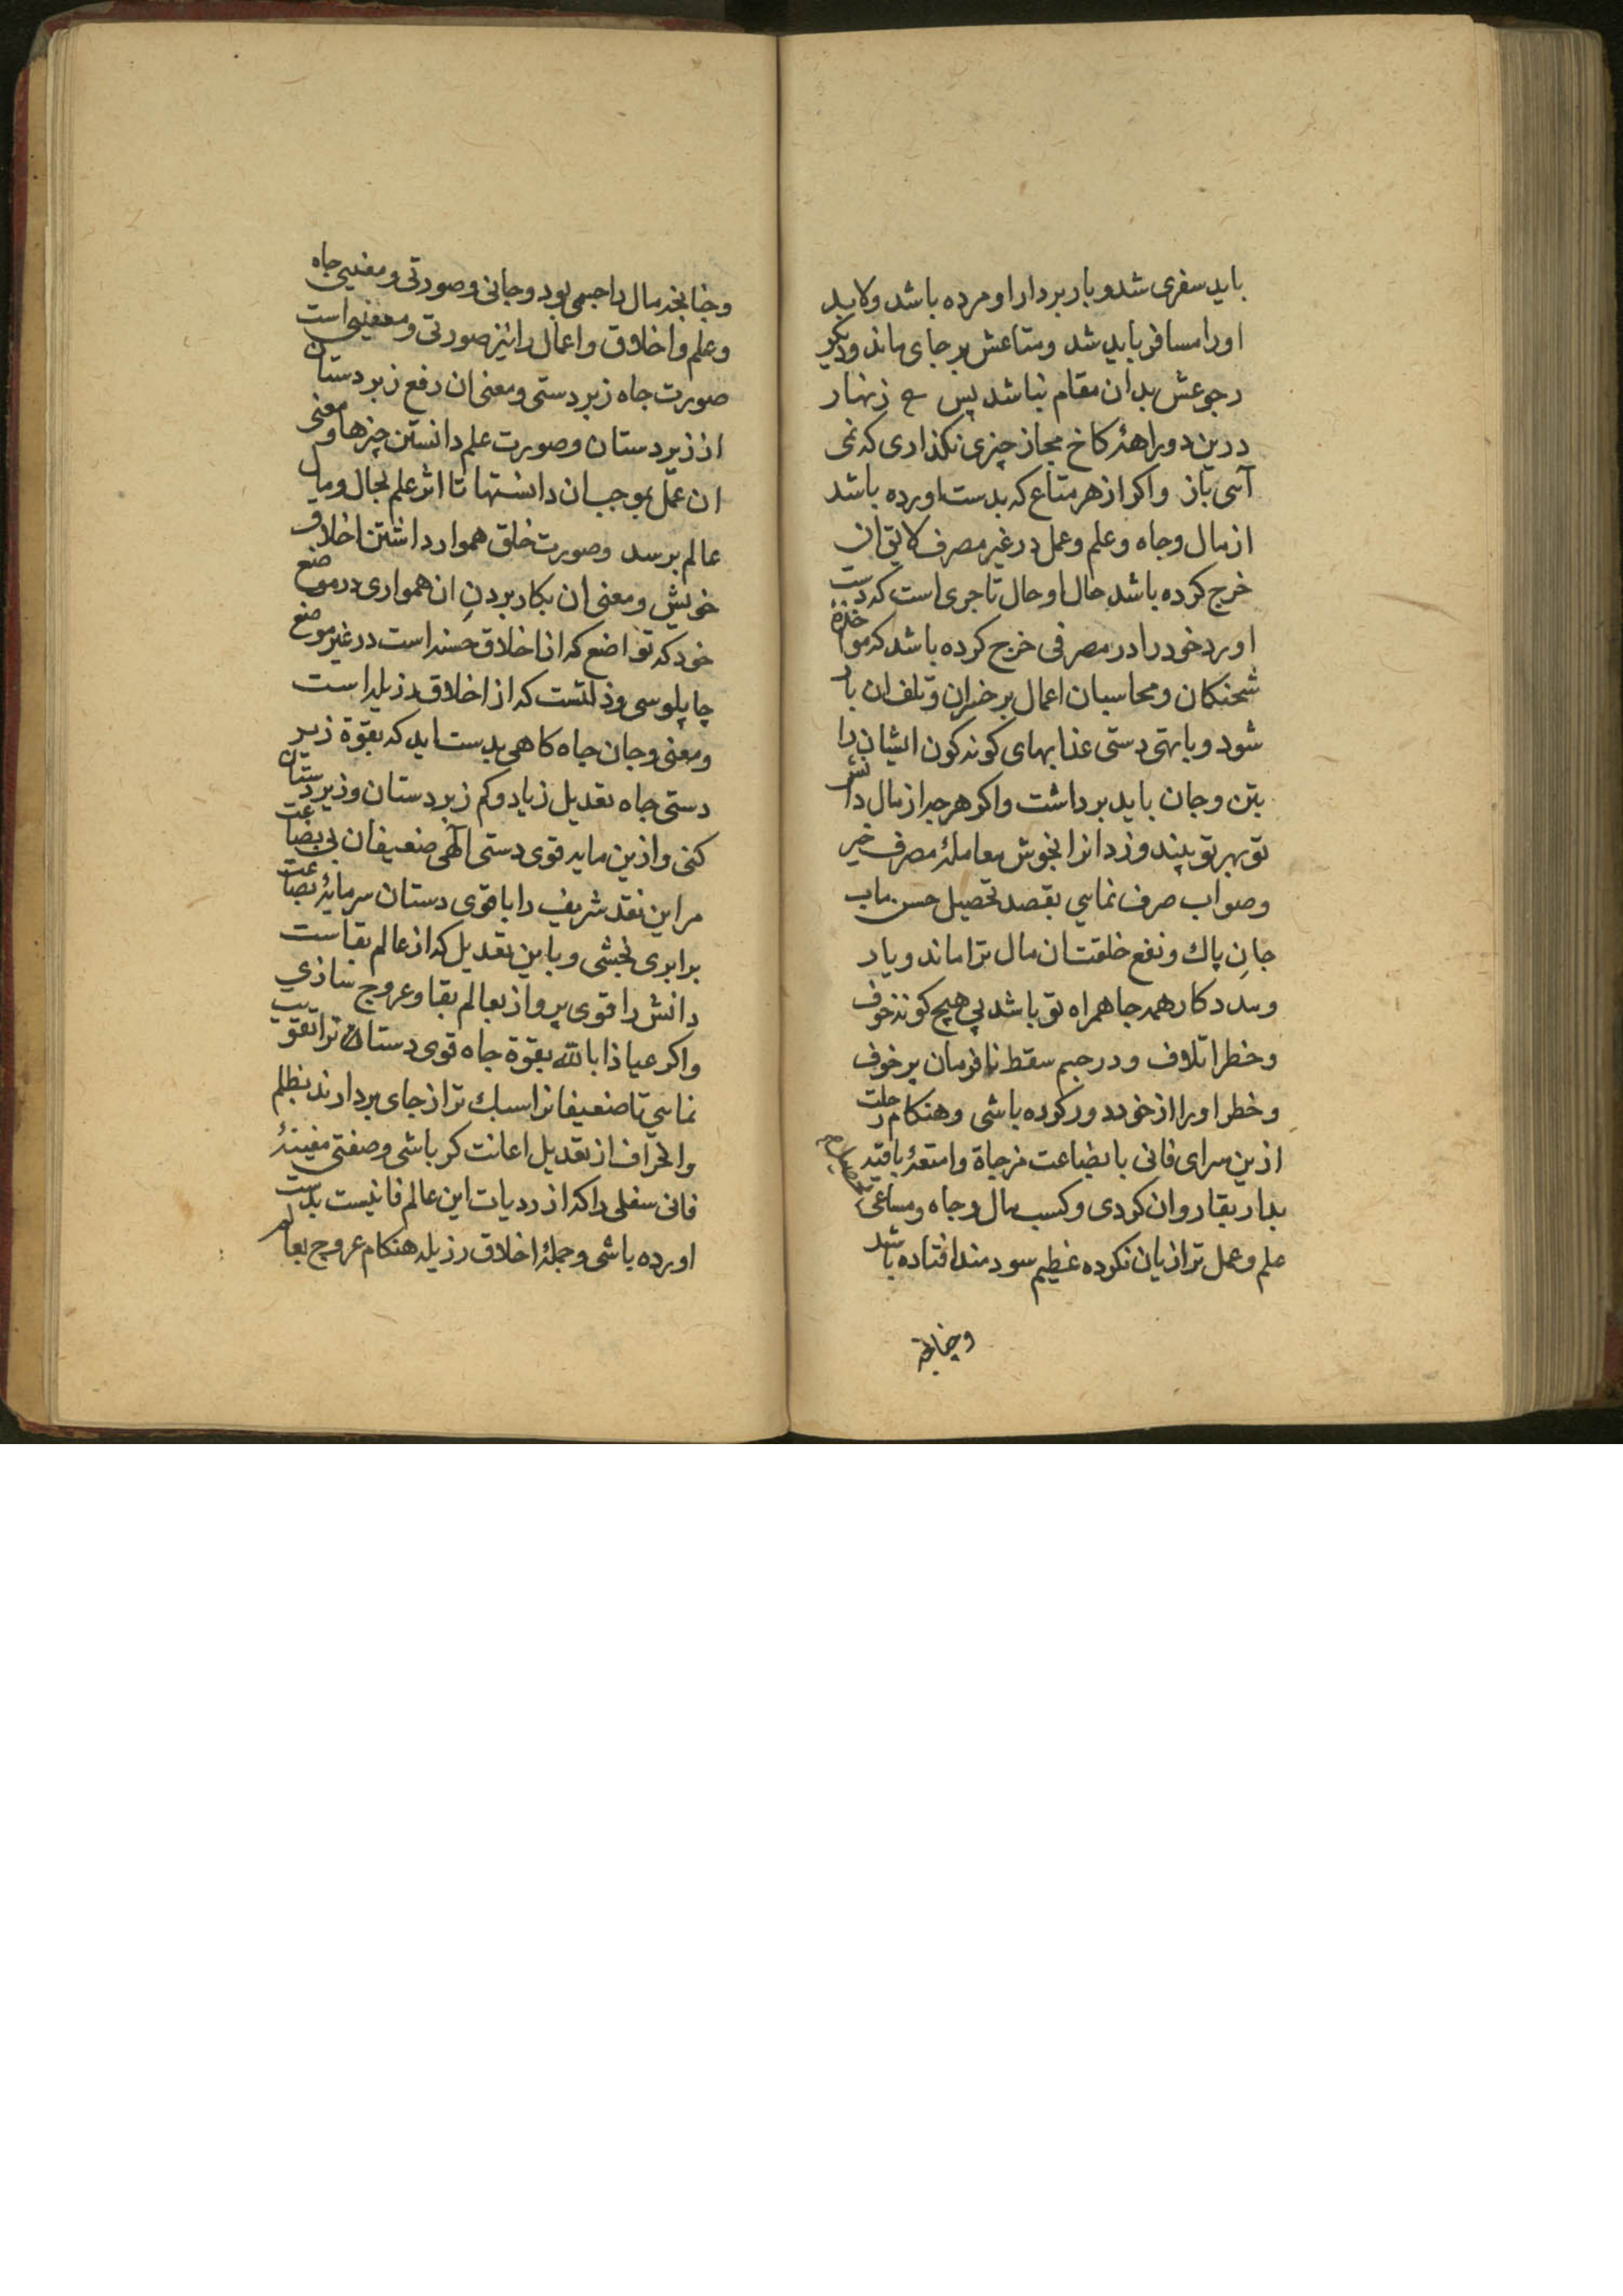 باید سفری شد و باربردار او مرده باشد ولابد
اورا مسافر باید شد ومتاعش بر جای ماند ودیکر
رجوعش بدان مقام نباشد پس ع زنهار
درین دوراههٔ کاخ مجاز چیزی نکذاری که نمی
آئی باز واکر از هر متاع که بدست اورده باشد
از مال وجاه وعلم وعمل در غیر مصرف لایق ان
خرج کرده باشد حال او حال تاجری است که دست
اورد خود را در مصرفی خرج کرده باشد که مواخذهٔ
شحنکان ومحاسبان اعمال بر خسران وتلف ان بار
شود وبا تهی دستی عذابهای کونه کون ایشان را
بتن وجان باید برداشت واکر هر چه از مال دانش
تو بهر تو پیندوزد انرا بخوش معاملهٔ مصرف خیر
وصواب صرف نمایی بقصد تحصیل حسن ماب
جانِ پاك ونفع خلقت ان مال ترا ماند ویار
ومدد کار همه جا همراه تو باشد بی هیچ کونه خوف
وخطر اتلاف ودر جیم سقط نافرمان پر خوف
وخطر اورا از خود دور کرده باشی وهنکام رحلت
ازین سرای فانی با بضاعت مزجاة وامتعهٔ باقیه
بدار بقا روان کردی وکسب مال وجاه ومساعی
علم وعمل ترا زیان نکرده عظیم سودمند افتاده باشد
وچنانچه
وچنانچه مال را جسمی بود وجانی وصورتی ومعنیی جاه
وعلم واخلاق واعمال را نیز صورتی ومعنیی است
صورت جاه زبردستی ومعنی ان رفع زبردستان
از زیردستان وصورت علم دانستن چیزها ومعنی
ان عمل بموجب ان دانستها تا اثر علم بحال ومال
عالم برسد وصورت خلق هموار داشتن اخلاق
خویش ومعنی ان بکار بردنِ ان همواری در موضع
خود که تواضع که از اخلاق حسنه است در غیر موضع
چاپلوسی وذلتست که از اخلاق رذیله است
ومعنی وجان جاه کاهی بدست اید که بقوّة زبر
دستی جاه تعدیل زیاد وکم زبردستان وزیردستان
کنی وازین مایه قوی دستی الهی ضعیفان بی بضاعت
مر این نقد شریف را با قوی دستان سرمایهٔ بضاعت
برابری بخشی وباین تعدیل که از عالم بقاست
دانش را قوی پرواز بعالم بقا وعروج سازی
واکر عیاذا بالله بقوّة جاه قوی دستان را تقویت
نمایی تا ضعیفانرا سبك تر از جای بردارند بظلم
وانحراف از تعدیل اعانت کر باشی وصفتی
فانی سفلی را که از ردیات این عالم فانیست بدست
اورده باشی وجملهٔ اخلاق رزیله هنکام عروج بعالم